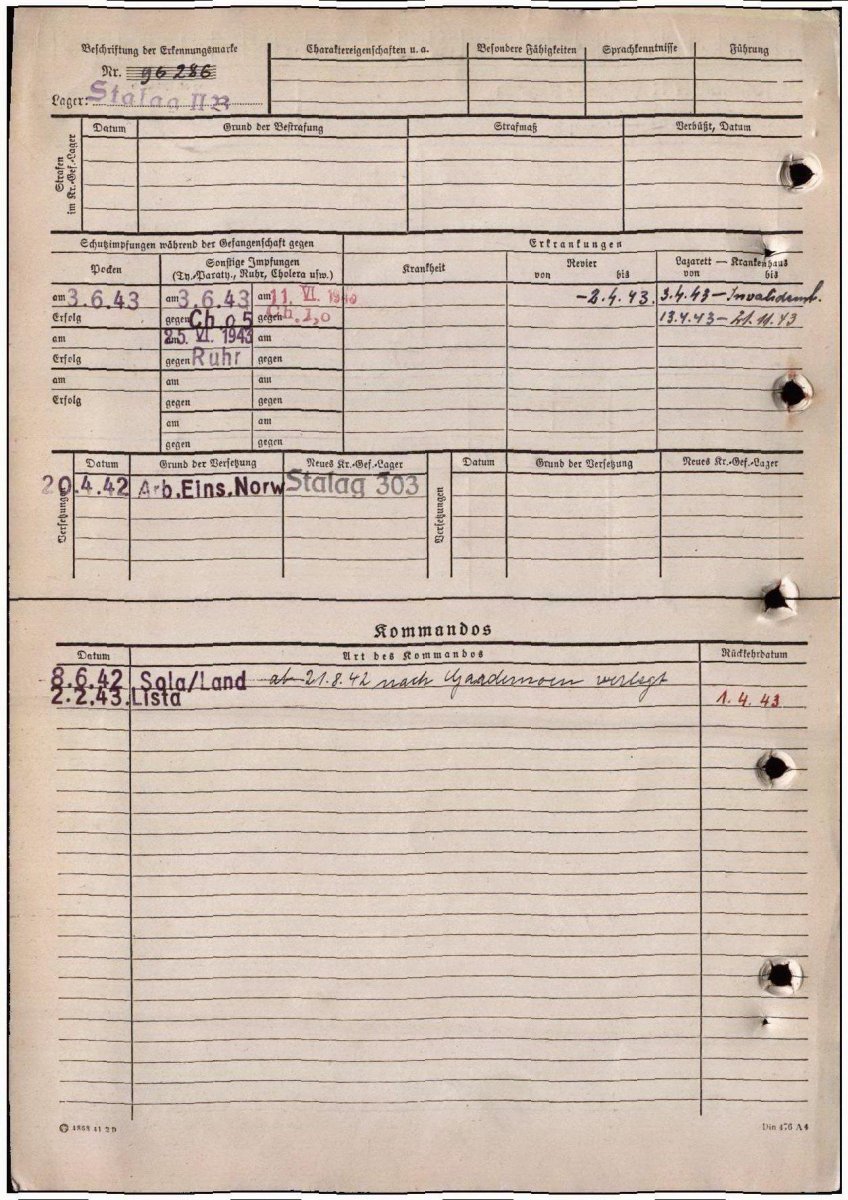 Beschriftung der Erkennungsmarke
Nr. 96 286
Lager: Stalag II B
Charaktereigenschaften u. a.
Besondere Fähigkeiten
Sprachkenntnisse
Führung
Strafen im Kr.-Gef.-Lager
Datum
Grund der Bestrafung
Strafmaß
Verbüßt, Datum
Schutzimpfungen während der Gefangenschaft gegen
Erkrankungen
Pocken
Sonstige Impfungen
(Ty.-Paraty., Ruhr, Cholera usw.)
Krankheit
Revier
von bis
Lazarett — Krankenhaus
von bis
am 3.6.43 am 3.6.43 am 11. VI.
-2.4.43. 3.4.43 –
Erfolg gegen Ch. 0,5 gegen Ch. 1,0
13.4.43 – 21.11.43
am am 25. VI. 1943 am
Erfolg gegen Ruhr gegen
am am am
Erfolg gegen gegen
am am
gegen gegen
Versetzungen
Datum Grund der Versetzung Neues Kr.-Gef.-Lager
20.4.42 Arb.Eins.Norw Stalag 303
Versetzungen
Datum Grund der Versetzung Neues Kr.-Gef.-Lager
Kommandos
Datum Art des Kommandos Rückkehrdatum
8.6.42 Sola/Land ab 21.8.42 nach Gardemoen verlegt
2.2.43. Lista 1.4.43
4868 41 2 D
Din 476 A 4